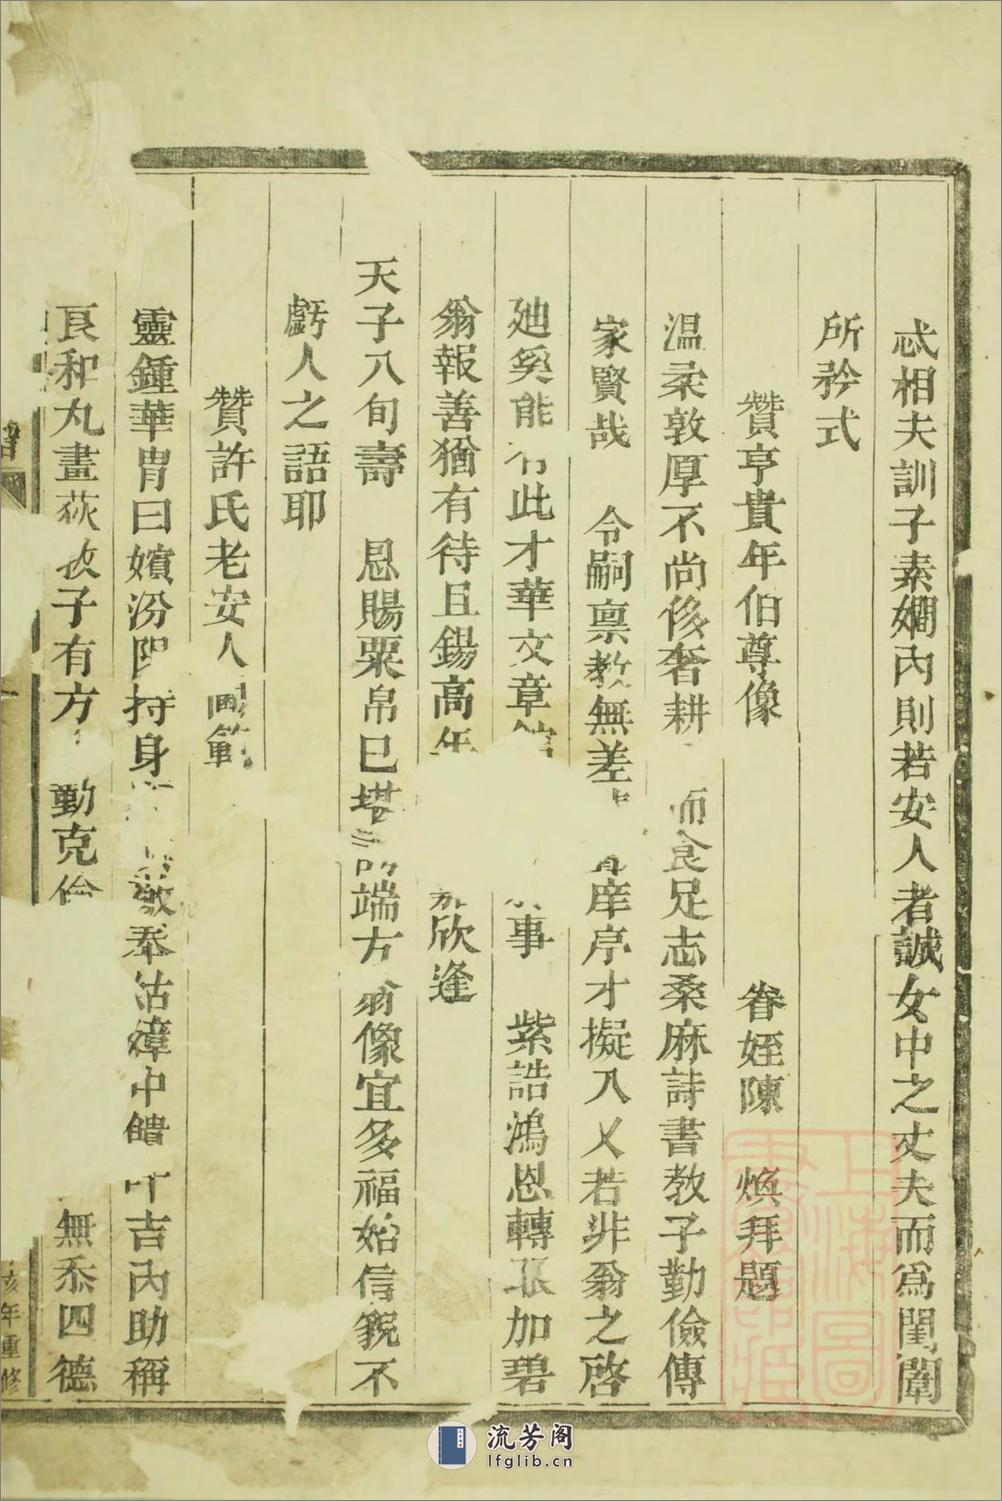 忒相夫訓子素嫻內則若安人者誠女中之丈夫而爲閨閫
所矜式
贊亨貴年伯尊像 眷姪陳 煥拜題
温柔敦厚不尚侈奢耕 而食足志桑麻詩書教子勤儉傳
家賢哉 令嗣禀教無差 庠序才擬八乂若非翁之啓
廸奚能有此才華文章 事 紫誥鴻恩轉眼加碧
翁報善猶有待且錫高年 欣逢
天子八旬壽 恩賜粟帛已 端方 翁像宜多福始信貌不
虧人之語耶
贊許氏老安人 範
靈鍾華胄曰嬪汾陽持身 敬奉姑嫜中饋 吉內助稱
良和丸畫荻教子有方 勤克儉 無忝四德
譜
亥年重修
上海圖書館藏
流芳阁
lfglib.cn